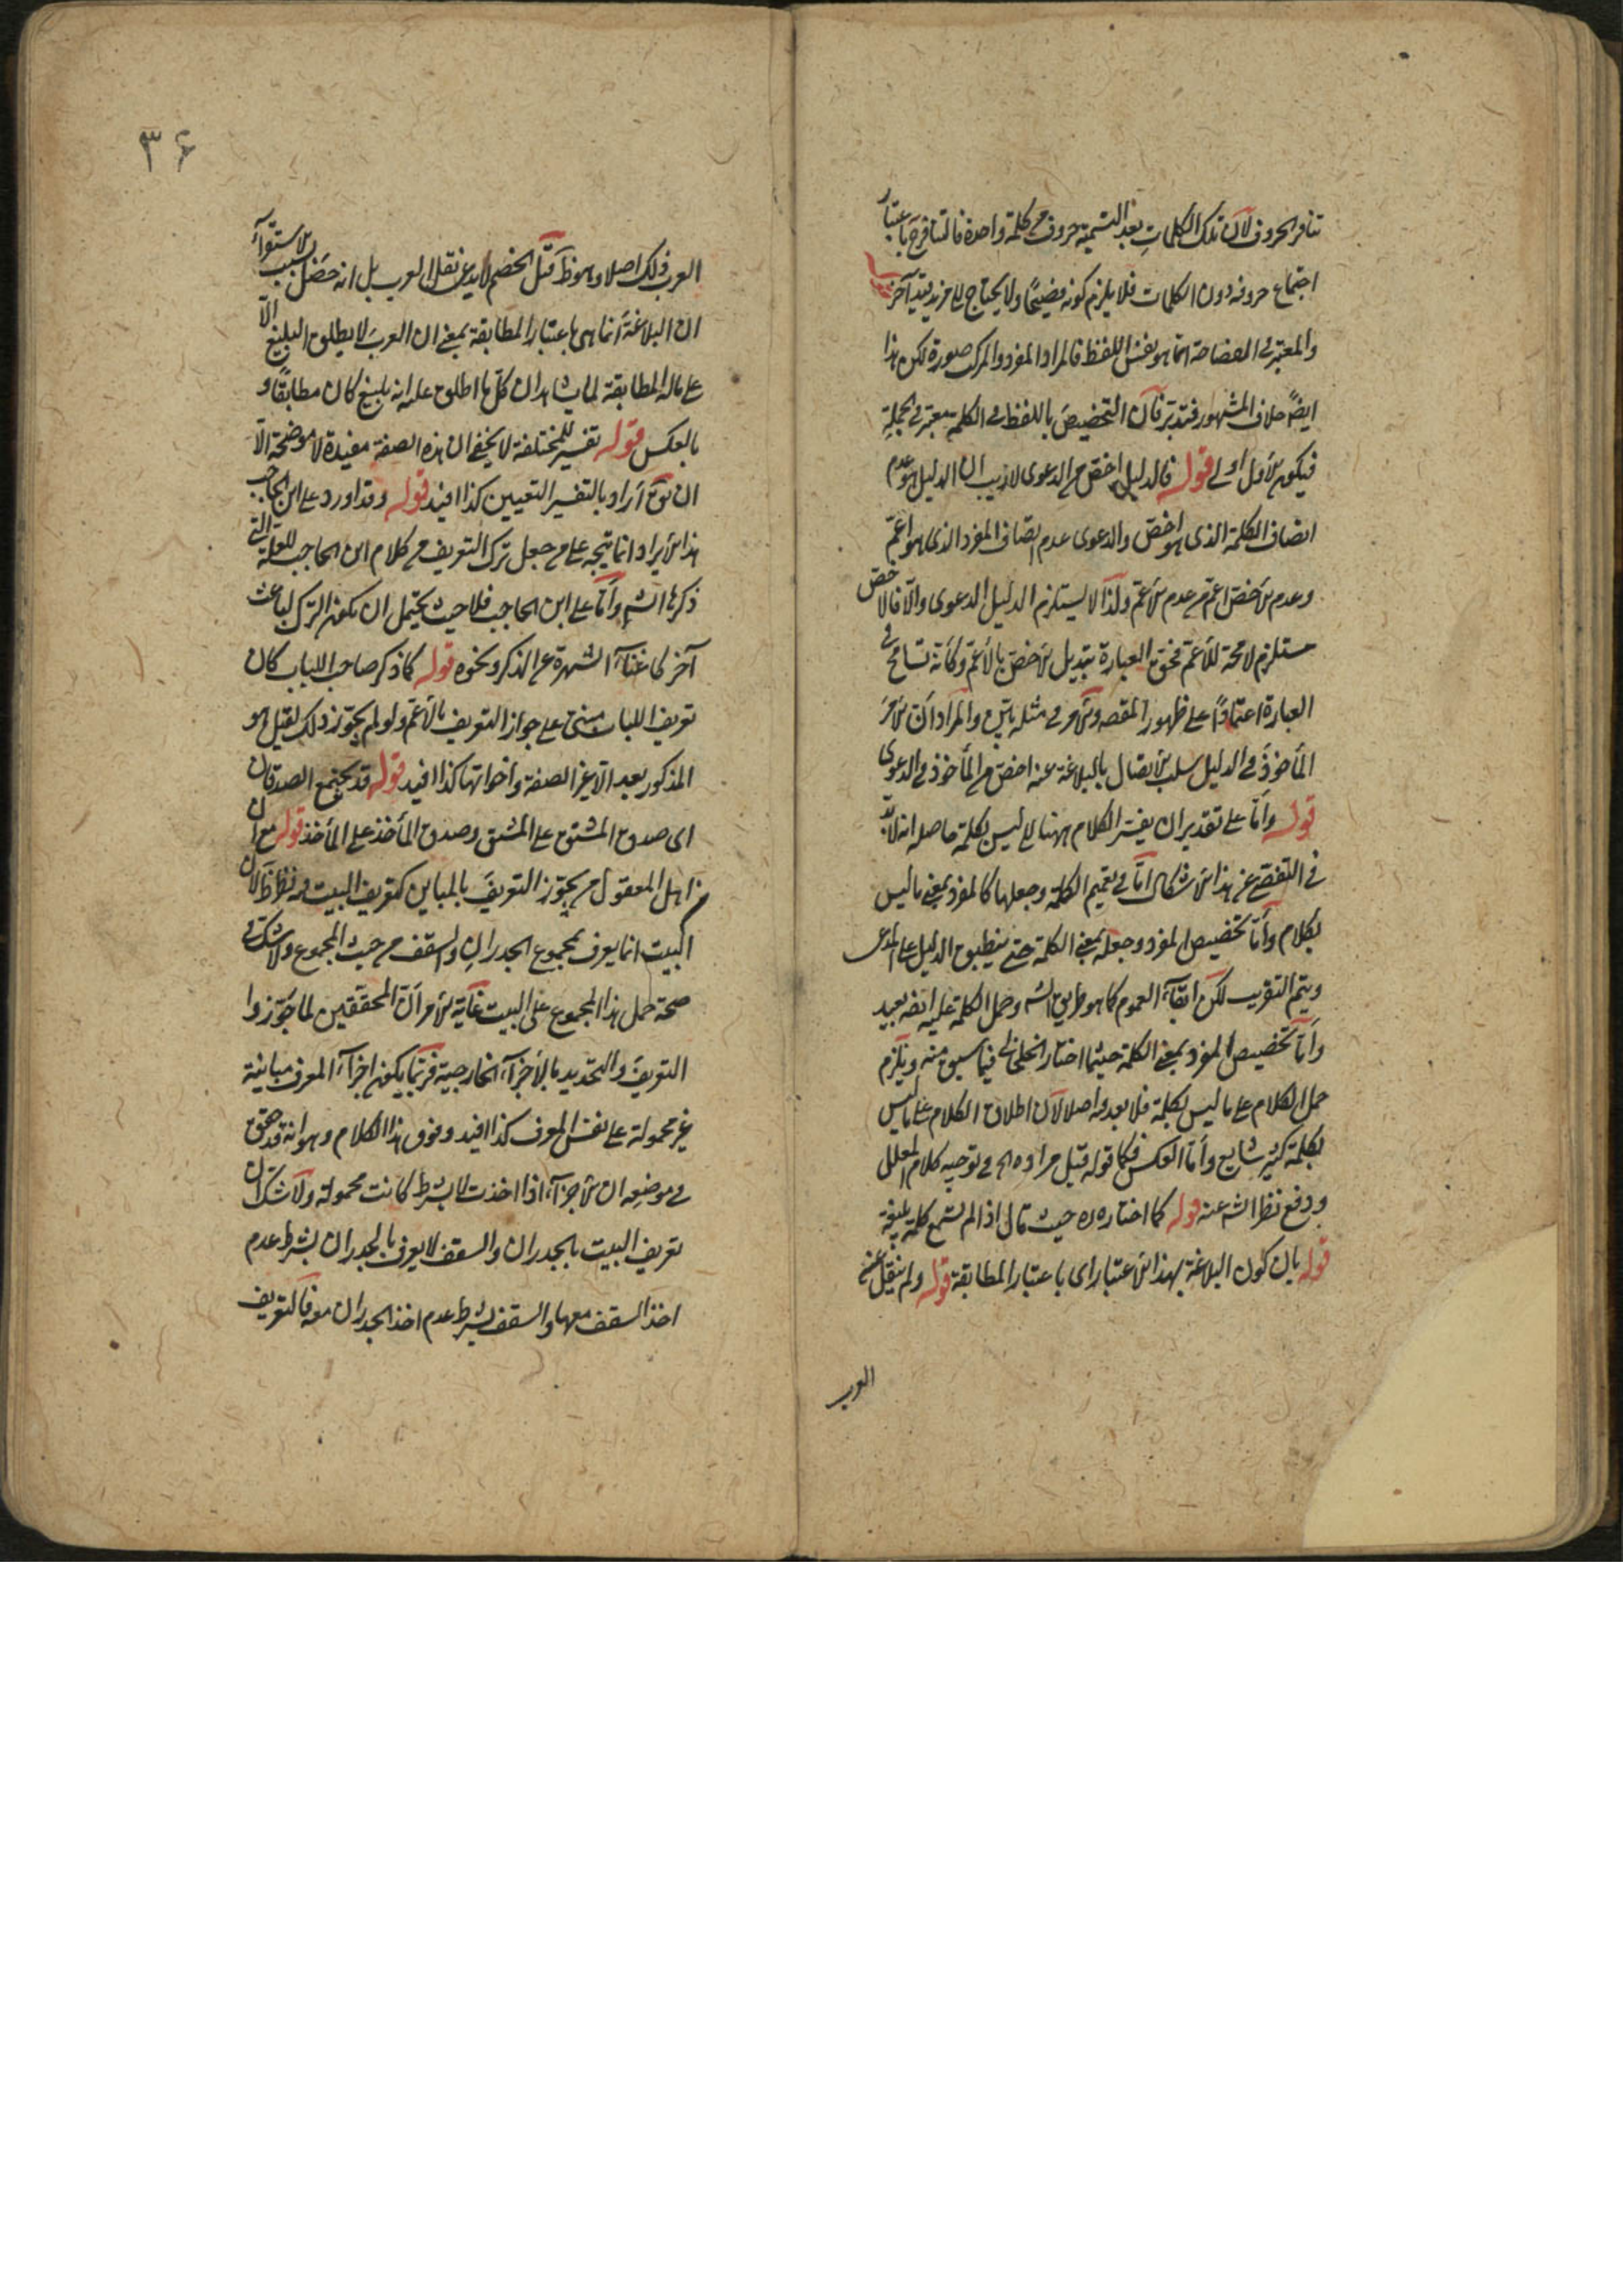 تنافر الحروف لان تلك الكلمات بعد التسمية حروف كلمة واحدة فالتنافر ح باعتبار
اجتماع حروفه دون الكلمات فلا يلزم كونه فصيحا ولا يحتاج الى مزيد قيد آخر
والمعتبر في الفصاحة انما هو نفس اللفظ فالمراد المفرد والمركب صورة لكن هذا
ايضا خلاف المشهور فتدبر فان التخصيص باللفظ في الكلمة معتبر في الجملة
فيكون الاول اولى قوله فالدليل اخص من الدعوى لا ريب ان الدليل هو عدم
اتصاف الكلمة الذي هو اخص والدعوى عدم اتصاف المفرد الذي هو اعم
وعدم الاخص اعم من عدم الاعم ولذا لا يستلزم الدليل الدعوى والا فالاخص
مستلزم لا محة للاعم فحق العبارة تبديل الاخص بالاعم وكانه تسامح في
العبارة اعتمادا على ظهور المقص والامر في مثله هين والمراد ان الامر
المأخوذ في الدليل سلب الاتصال بالبلاغة عنه اخص من المأخوذ في الدعوى
قوله واما على تقدير ان يفسر الكلام ههنا بما ليس بكلمة حاصله انه لا بد
في التفصي عن هذا الاشكال اما في تعميم الكلمة وجعلها كالمفرد بمعنى ما ليس
بكلام واما تخصيص المفرد وجعله بمعنى الكلمة حتى ينطبق الدليل على المدعى
ويتم التقريب لكن ابقاء العموم كما هو طريق الش وحمل الكلمة عليه ايضا بعيد
واما تخصيص المفرد بمعنى الكلمة حيثما اختار الخلخالي فيما سبق منه ويلزم
حمل الكلام على ما ليس بكلمة فلا بعد فيه اصلا لان اطلاق الكلام على ما ليس
بكلمة كثير شايع واما العكس فكما قوله قيل مراده الخ في توجيه كلام المعلل
ودفع نظر الش عنه قوله كما اختاره ره حيث قال اذ لم تسمع كلمة بليغة
قوله بان كون البلاغة بهذا الاعتبار اى باعتبار المطابقة قوله ولم ينقل عن
العرب
۳۶
العرب ذلك اصلا وهو ظ قيل الخصم لا يدعى نقلا من العرب بل انه حصل بسبب الاستقراء
ان البلاغة انما هى باعتبار المطابقة بمعنى ان العرب لا يطلق البليغ الا
على ماله المطابقة لما يشاهد ان كل ما اطلق عليه انه بليغ كان مطابقا و
بالعكس قوله تفسير للمختلفة لا يخفى ان هذه الصفة مفيدة لا موضحة الا
ان يق اراد بالتفسير التعيين كذا افيد قوله وقد اورد على ابن الحاجب
هذا الايراد انما يتجه على من جعل ترك التعريف من كلام ابن الحاجب للعلة التى
ذكرها الش واما على ابن الحاجب فلا حيث يحتمل ان يكون الترك لباعث
آخر كاغناء الشهرة عن الذكر ونحوه قوله كما ذكر صاحب اللباب كان
تعريف اللباب مبنى على جواز التعريف بالاعم ولو لم يجوز ذلك لقيل هو
المذكور بعد الا غير الصفة واخواتها كذا افيد قوله قد يجتمع الصدقان
اى صدق المشتق على المشتق وصدق المأخذ على المأخذ قوله مع ان
من اهل المعقول من يجوز التعريف بالمباين كتعريف البيت فيه نظر ظ لان
البيت انما يعرف بمجموع الجدران والسقف من حيث المجموع ولا شك في
صحة حمل هذا المجموع على البيت غاية الامر ان المحققين لما جوزوا
التعريف والتحديد بالاجزاء الخارجية فربما يكون اجزاء المعرف مباينة
غير محمولة على نفس المعرف كذا افيد وفوق هذا الكلام وهو انه قد حقق
في موضعه ان الاجزاء اذا اخذت لا بشرط كانت محمولة ولا شك ان
تعريف البيت بالجدران والسقف لا يعرف بالجدران بشرط عدم
اخذ السقف معها والسقف بشرط عدم اخذ الجدران معه فالتعريف